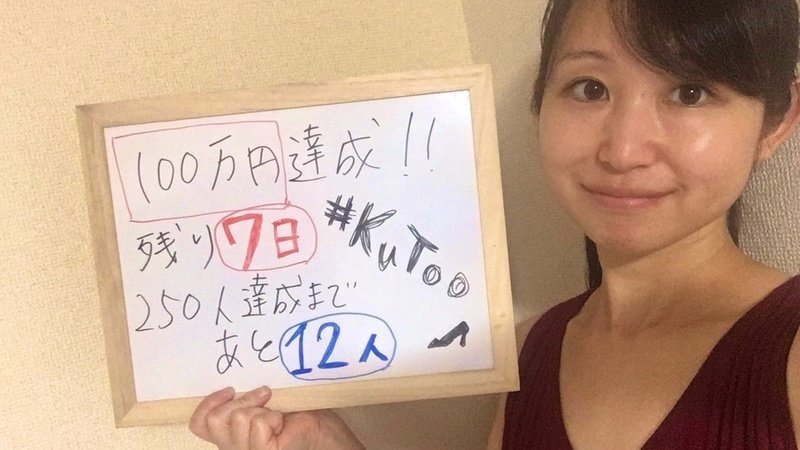 100万円達成!!
残り7日
#KuToo
250人達成まで
あと12人